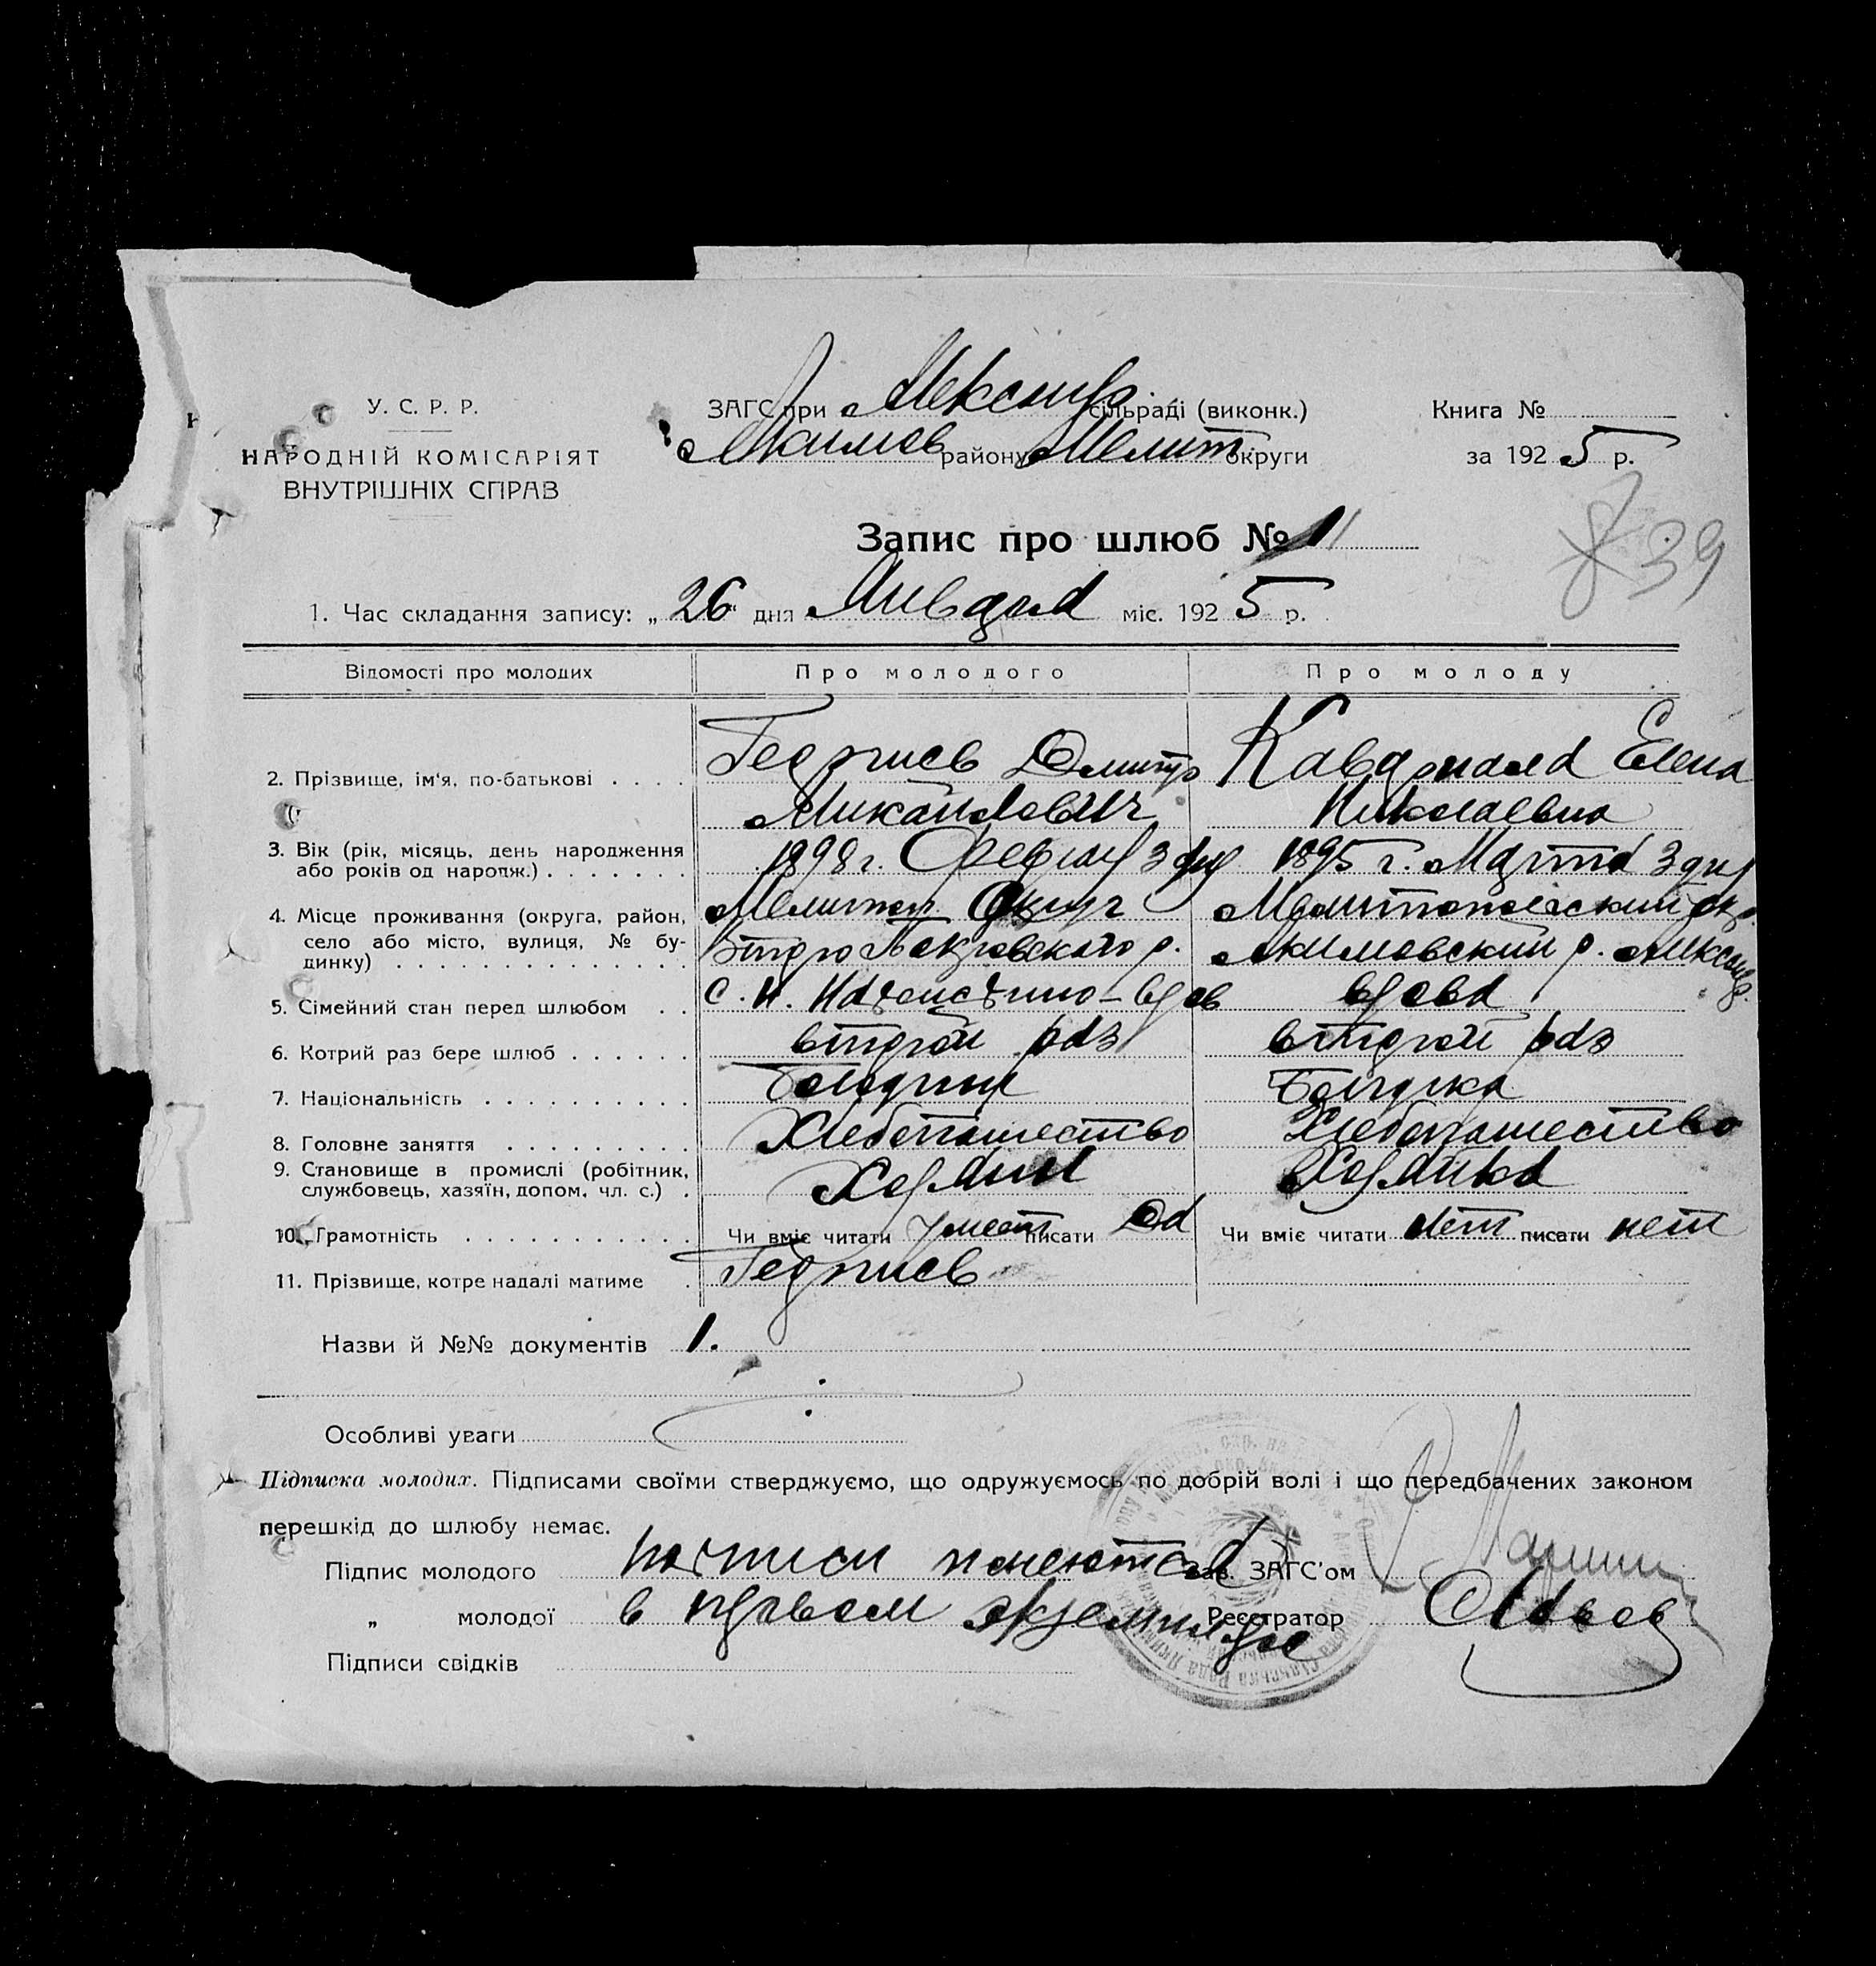 У. С. Р. Р.
НАРОДНІЙ КОМІСАРІЯТ
ВНУТРІШНІХ СПРАВ
ЗАГС при Александр. сільраді (виконк.)
Акимов района Мелит. округи
Книга №
за 1925 р.
Запис про шлюб № 11
39
1. Час складання запису: „26“ дня Января міс. 1925 р.
Відомості про молодих Про молодого Про молоду
2. Прізвище, ім'я, по-батькові Георгиев Дмитр Михайлович Кавдрианая Елена Николаевна
3. Вік (рік, місяць, день народження або років од народж.) 1898 г. Февраля 3 дня 1895 г. Марта 3 дня
4. Місце проживання (округа, район, село або місто, вулиця, № будинку) Мелитоп. Округ Второ Покровского р. с. Мелитопольский окр. Акимовский р. Александр.
5. Сімейний стан перед шлюбом вдов вдова
6. Котрий раз бере шлюб второй раз второй раз
7. Національність Болгарин Болгарка
8. Головне заняття Хлебопашество Хлебопашество
9. Становище в промислі (робітник, службовець, хазяїн, допом. чл. с.) Хозяин Хозяйка
10. Грамотність Чи вміє читати Умеет писати Да Чи вміє читати Нет писати нет
11. Прізвище, котре надалі матиме Георгиев
Назви й №№ документів 1.
Особливі уваги
Підписка молодих. Підписами своїми стверджуємо, що одружуємось по добрій волі і що передбачених законом
перешкід до шлюбу немає.
Підпис молодого подписи имеются Зав. ЗАГС'ом
„ молодої в первом экземпляре Реєстратор
Підписи свідків